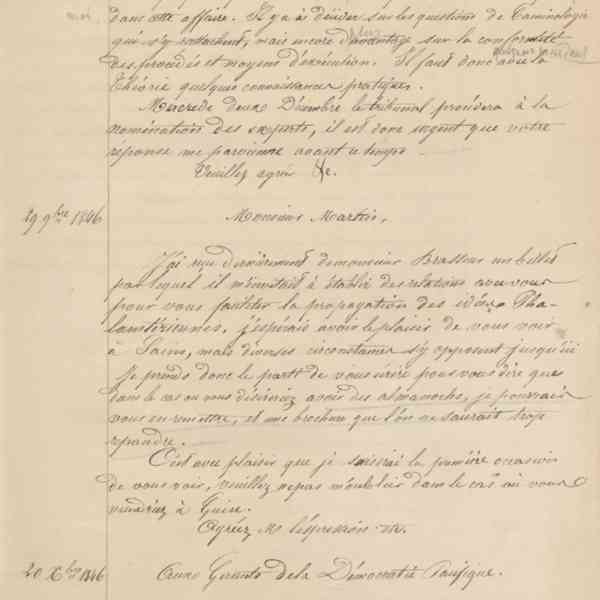 dans cette affaire. Il y a à décider sur les questions de Caminologie
qui s'y rattachent, mais encore plus davantage sur la conformité
des procédés et moyens d'exécution. Il faut donc avec la
théorie quelques connaissances pratiques.
Mercredi deux Décembre le tribunal procédera à la
nomination des experts, il est donc urgent que votre
réponse me parvienne avant ce temps
Veuillez agréer &c.
29 9bre 1846
Monsieur Martin,
J'ai reçu dernièrement de monsieur Brasseur un billet
par lequel il m'invitait à établir des relations avec vous
pour vous faciliter la propagation des idées Pha-
lanstériennes, j'espérais avoir le plaisir de vous voir
à Sains, mais diverses circonstances s'y opposent jusqu'ici
Je prends donc le parti de vous écrire pour vous dire que
dans le cas ou vous désireriez avoir des almanachs, je pourrais
vous en remettre, et une brochure que l'on ne saurait trop
répandre.
C'est avec plaisir que je saisirai la première occasion
de vous voir, veuillez ne pas m'oublier dans le cas où vous
viendriez à Guise.
Agréez M. l'expression &c.
20 Xbre 1846
Aux Gérants de la Démocratie Pacifique.